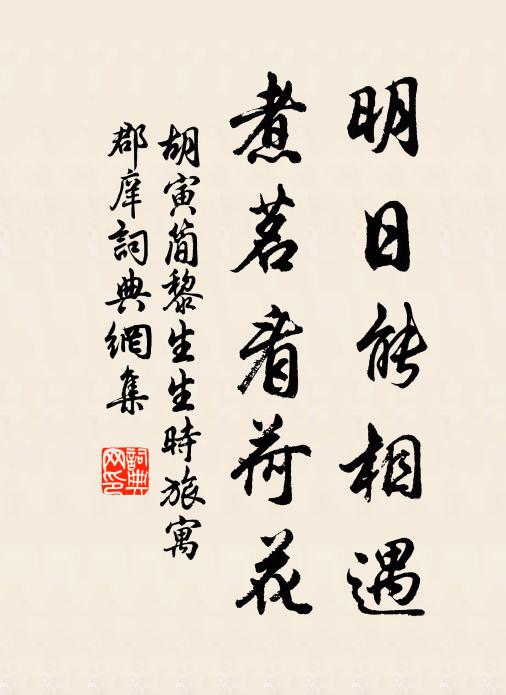 明日能相遇
煮茗看荷花
胡寅簡黎生生時旅寓
郡庠詞典網集
詞典網印